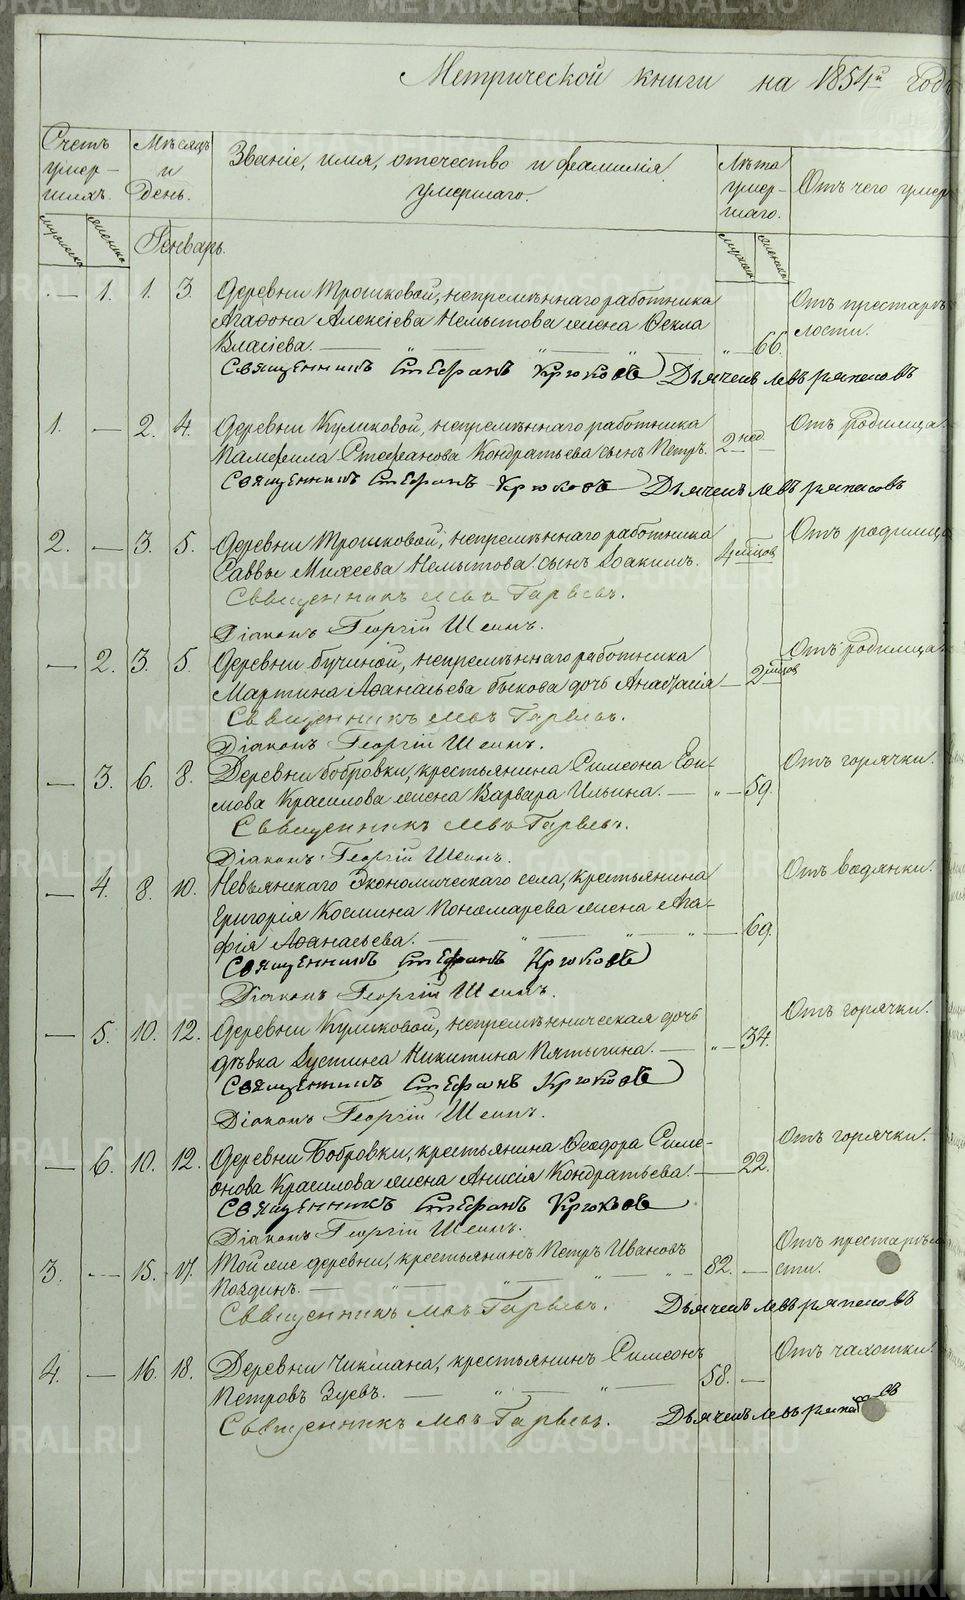 Метрической книги на 1854й год
Счетъ умер-шихъ.
Мѣсяцъ и день.
Званіе, имя, отечество и фамилія умершаго.
Лѣта умер-шаго.
Отъ чего умер
мужеска женска
Генварь.
мужеска женска
— 1. 1. 3. Деревни Трошковой, непремѣннаго работника Отъ престарѣ-
Агафона Алексіева Немытова жена Ѳекла лости.
Власіева. — „ — „ — „ „ — 66.
Священникъ Стефанъ Крюковъ Дьячекъ Левъ
1. — 2. 4. Деревни Куликовой, непремѣннаго работника Отъ родимца.
Памфила Стефанова Кондратьева сынъ Петръ. 2 нед —
Священникъ Стефанъ Крюковъ Дьячекъ Левъ
2. — 3. 5. Деревни Трошковой, непремѣннаго работника Отъ родимца
Саввы Михеева Немытова сынъ Іоакимъ. 4 мѣсцов
Священникъ Левъ
Діаконъ Георгій Шеинъ.
— 2. 3. 5. Деревни Бучиной, непремѣннаго работника Отъ родимца
Мартина Аѳанасьева Быкова дочь Анастасія — 2 мѣсцов
Священникъ Левъ
Діаконъ Георгій Шеинъ.
— 3. 6. 8. Деревни Бобровки, крестьянина Симеона Ефи- Отъ горячки.
мова Красилова жена Варвара Ильина. — „ — 59.
Священникъ Левъ
Діаконъ Георгій Шеинъ.
— 4. 8. 10. Невьянскаго Экономическаго села, крестьянина Отъ водянки.
Григорія Космина Пономарева жена Ага-
фія Аѳанасьева. — „ — „ — „ — 69.
Священникъ Стефанъ Крюковъ
Діаконъ Георгій Шеинъ.
— 5. 10. 12. Деревни Куликовой, непремѣнническая дочь Отъ горячки.
дѣвка Іустина Никитина Пятыгина. — „ — 34.
Священникъ Стефанъ Крюковъ
Діаконъ Георгій Шеинъ.
— 6. 10. 12. Деревни Бобровки, крестьянина Ѳеодора Симе- Отъ горячки.
онова Красилова жена Анисія Кондратьева. — 22.
Священникъ Стефанъ Крюковъ
Діаконъ Георгій Шеинъ.
3. — 15. 17. Той же деревни, крестьянинъ Петръ Ивановъ 82. — Отъ престарѣло-
сти.
Священникъ Левъ Дьячекъ Левъ
4. — 16. 18. Деревни Чикмана, крестьянинъ Симеонъ Отъ чахотки.
Петровъ Зуевъ. — „ — „ — 58. —
Священникъ Левъ Дьячекъ Левъ
METRIKI.GASO-URAL.RU